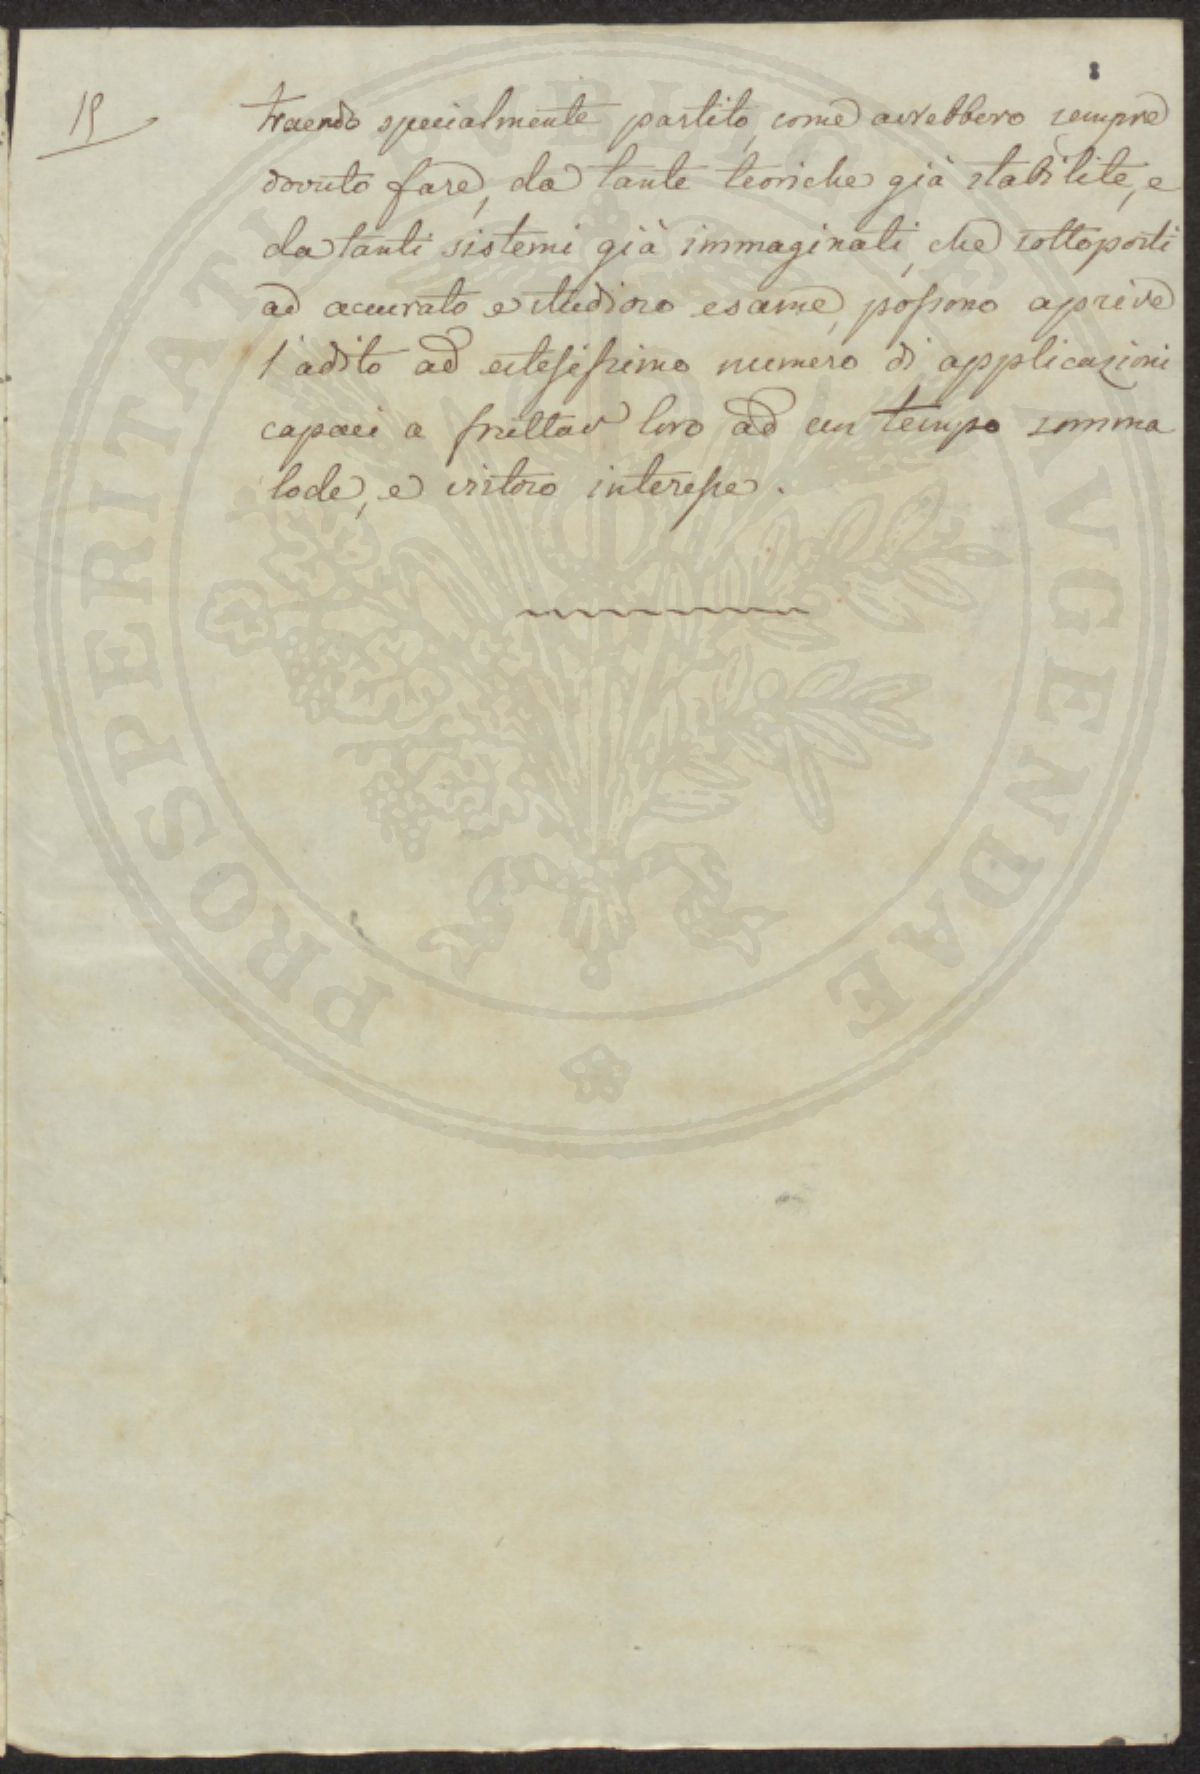 15
8
traendo specialmente partito, come avrebbero sempre
dovuto fare, da tante teoriche già stabilite, e
da tanti sistemi già immaginati, che sottoposti
ad accurato e studioso esame, possono aprire
l'adito ad estesissimo numero di applicazioni
capaci a fruttar loro ad un tempo somma
lode, e vistoso interesse.
PROSPERITATI PVBLICAE AVGENDAE